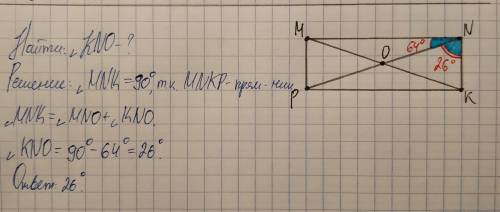 Найти: ∠KNO-?
Решение: ∠MNK=90°, т.к. MNKP-прям-ник
∠MNK=∠MNO+∠KNO.
∠KNO=90°-64°=26°.
Ответ: 26°.
M
N
O
64°
26°
P
K